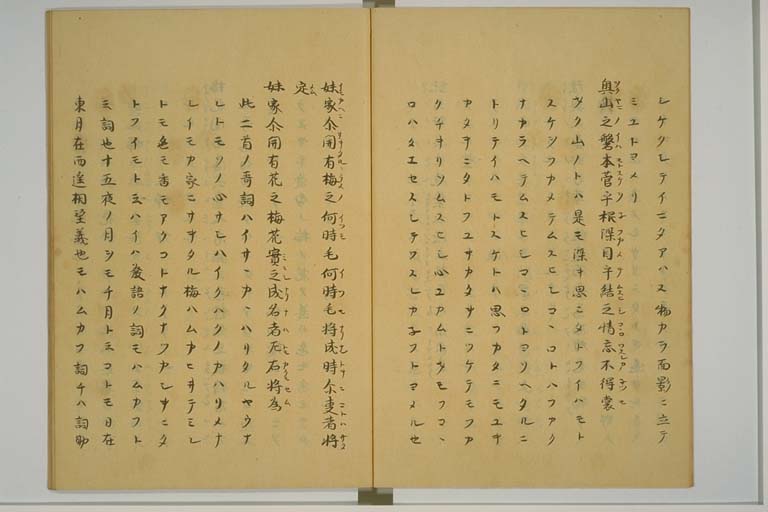 シケクシテイニタアハス物カラ面影ニ立テ
ミユトヨメリ
奥山之磐本菅乎根深目手結之情忘不得裳
ヲク山ノトハ是モ深キ思ニタトフイハモト
スケシフカメテムスヒシコヽロトハフカク
ナカラヘテムスヒシコヽロトヨリヘタルニ
トリテイハモトスケトハ思フカタニモユキ
カタキニタトフユサカタキニツケテモフカ
クチキリシムスヒシ心ユカムトタモフコヽ
ロハタエセスシテワスレカネツトヨメルセ
妹家尓開有梅之何時毛何時毛将成時尓事者将
定
妹家尓開有花之梅花實之成名者左右将為
此二首ノ哥詞ハイサヽカヽハリタルヤウナ
レトモソノ心ナシハイクハクノカハリメナ
シイモカ家ニサキタル梅ハムカヒヰテミレ
トモ色モ香モアクコトナクナツカシキニタ
トフイモトヱハイハ發語ノ詞モハムカフト
云詞也十五夜ノ月シモチ月トミコトモ日在
東月在西遙相望義也モハムカフ詞チハ詞助